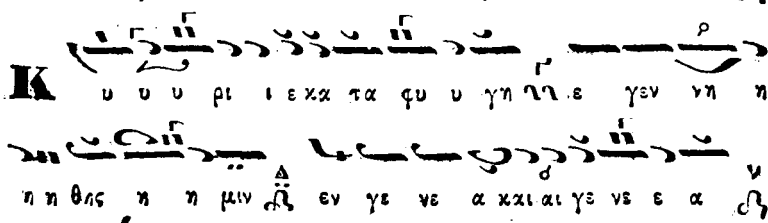 Κ υ υ υ ρι ι ε κα τα φυ υ γη ε γεν νη η
η η θης η η μιν εν γε νε α κκι αι γε νε ε α